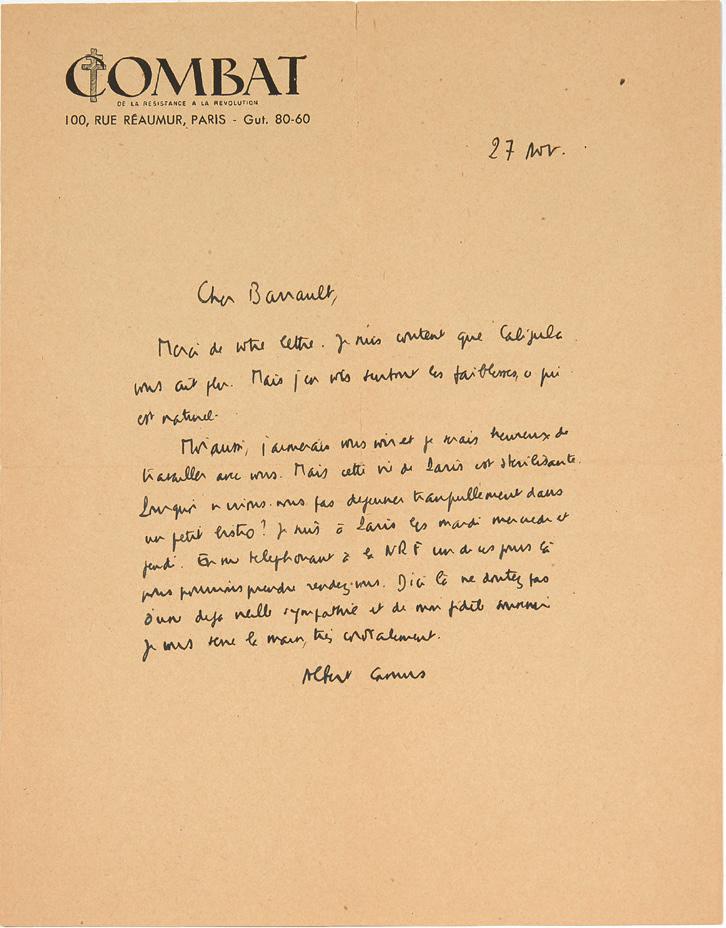 COMBAT
DE LA RESISTANCE A LA REVOLUTION
100, RUE RÉAUMUR, PARIS - Gut. 80-60
27 nov.
Cher Barrault,
Merci de votre lettre. Je suis content que Caligula
vous ait plu. Mais j'en vois surtout les faiblesses, ce qui
est naturel.
Moi aussi, j'aimerais vous voir et je serais heureux de
travailler avec vous. Mais cette vie de Paris est stérilisante.
Pourquoi n'irions-nous pas déjeuner tranquillement dans
un petit bistro? Je suis à Paris les mardi mercredi et
jeudi. En me téléphonant à la NRF un de ces jours là
nous pourrions prendre rendez-vous. D'ici là ne doutez pas
d'une déjà vieille sympathie et de mon fidèle souvenir
Je vous serre la main, très cordialement.
Albert Camus